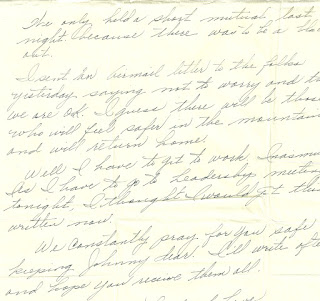 We only held a short mutual last
night because there was to be a bla
out.
I sent an airmail letter to the folks
yesterday saying not to worry and th
we are OK. I guess there will be thos
who will feel safer in the mountain
and will return home.
Well I have to get to work, Inasmu
as I have to go to Leadership meetin
tonight, I thought I would get this
written now.
We constantly pray for you safe
keeping Johnny dear. I'll write ofte
and hope you receive them all.